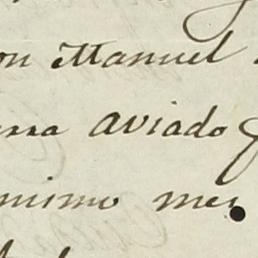 on Manuel
erra aviado
mismo mes